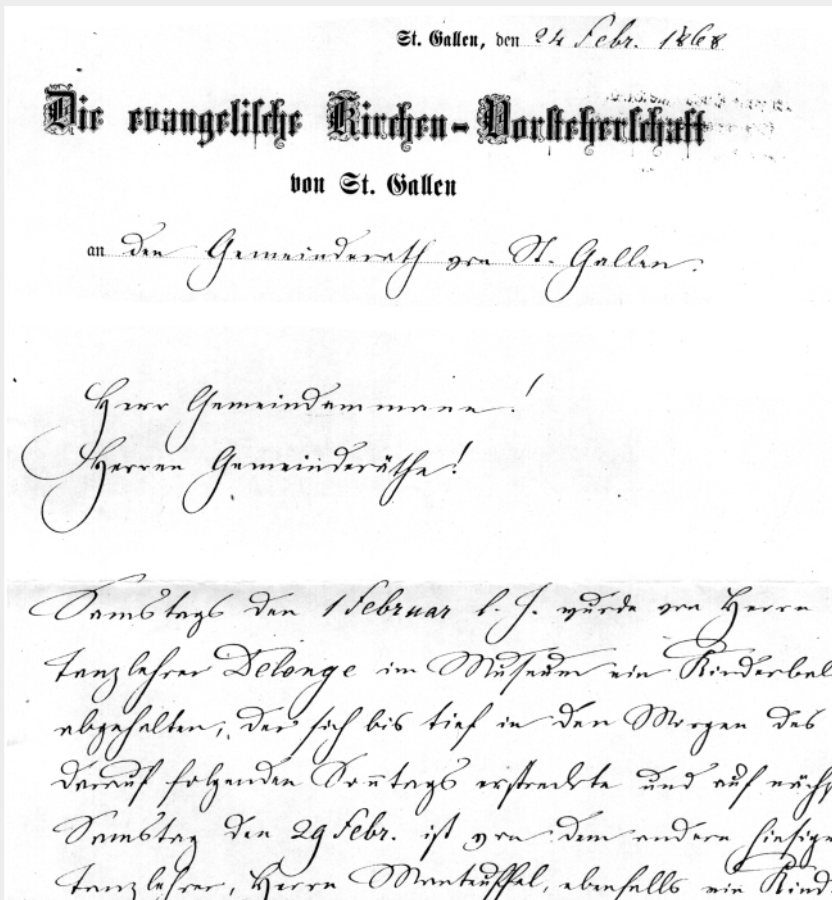 St. Gallen, den 24 Febr. 1868
Die evangelische Kirchen-Vorsteherschaft
von St. Gallen
an den Gemeinderath von St. Gallen.
Herr Gemeindammann!
Herren Gemeinderäthe!
Samstags den 1 Februar l. J. wurde von Herrn
Tanzlehrer Delonge im Museum ein Kinderbal
abgehalten, der sich bis tief in den Morgen des
darauf folgenden Sonntags erstreckte und auf näch
Samstag den 29 Febr. ist von dem andern hiesige
Tanzlehrer, Herrn Manteuffel, ebenfalls ein Kind